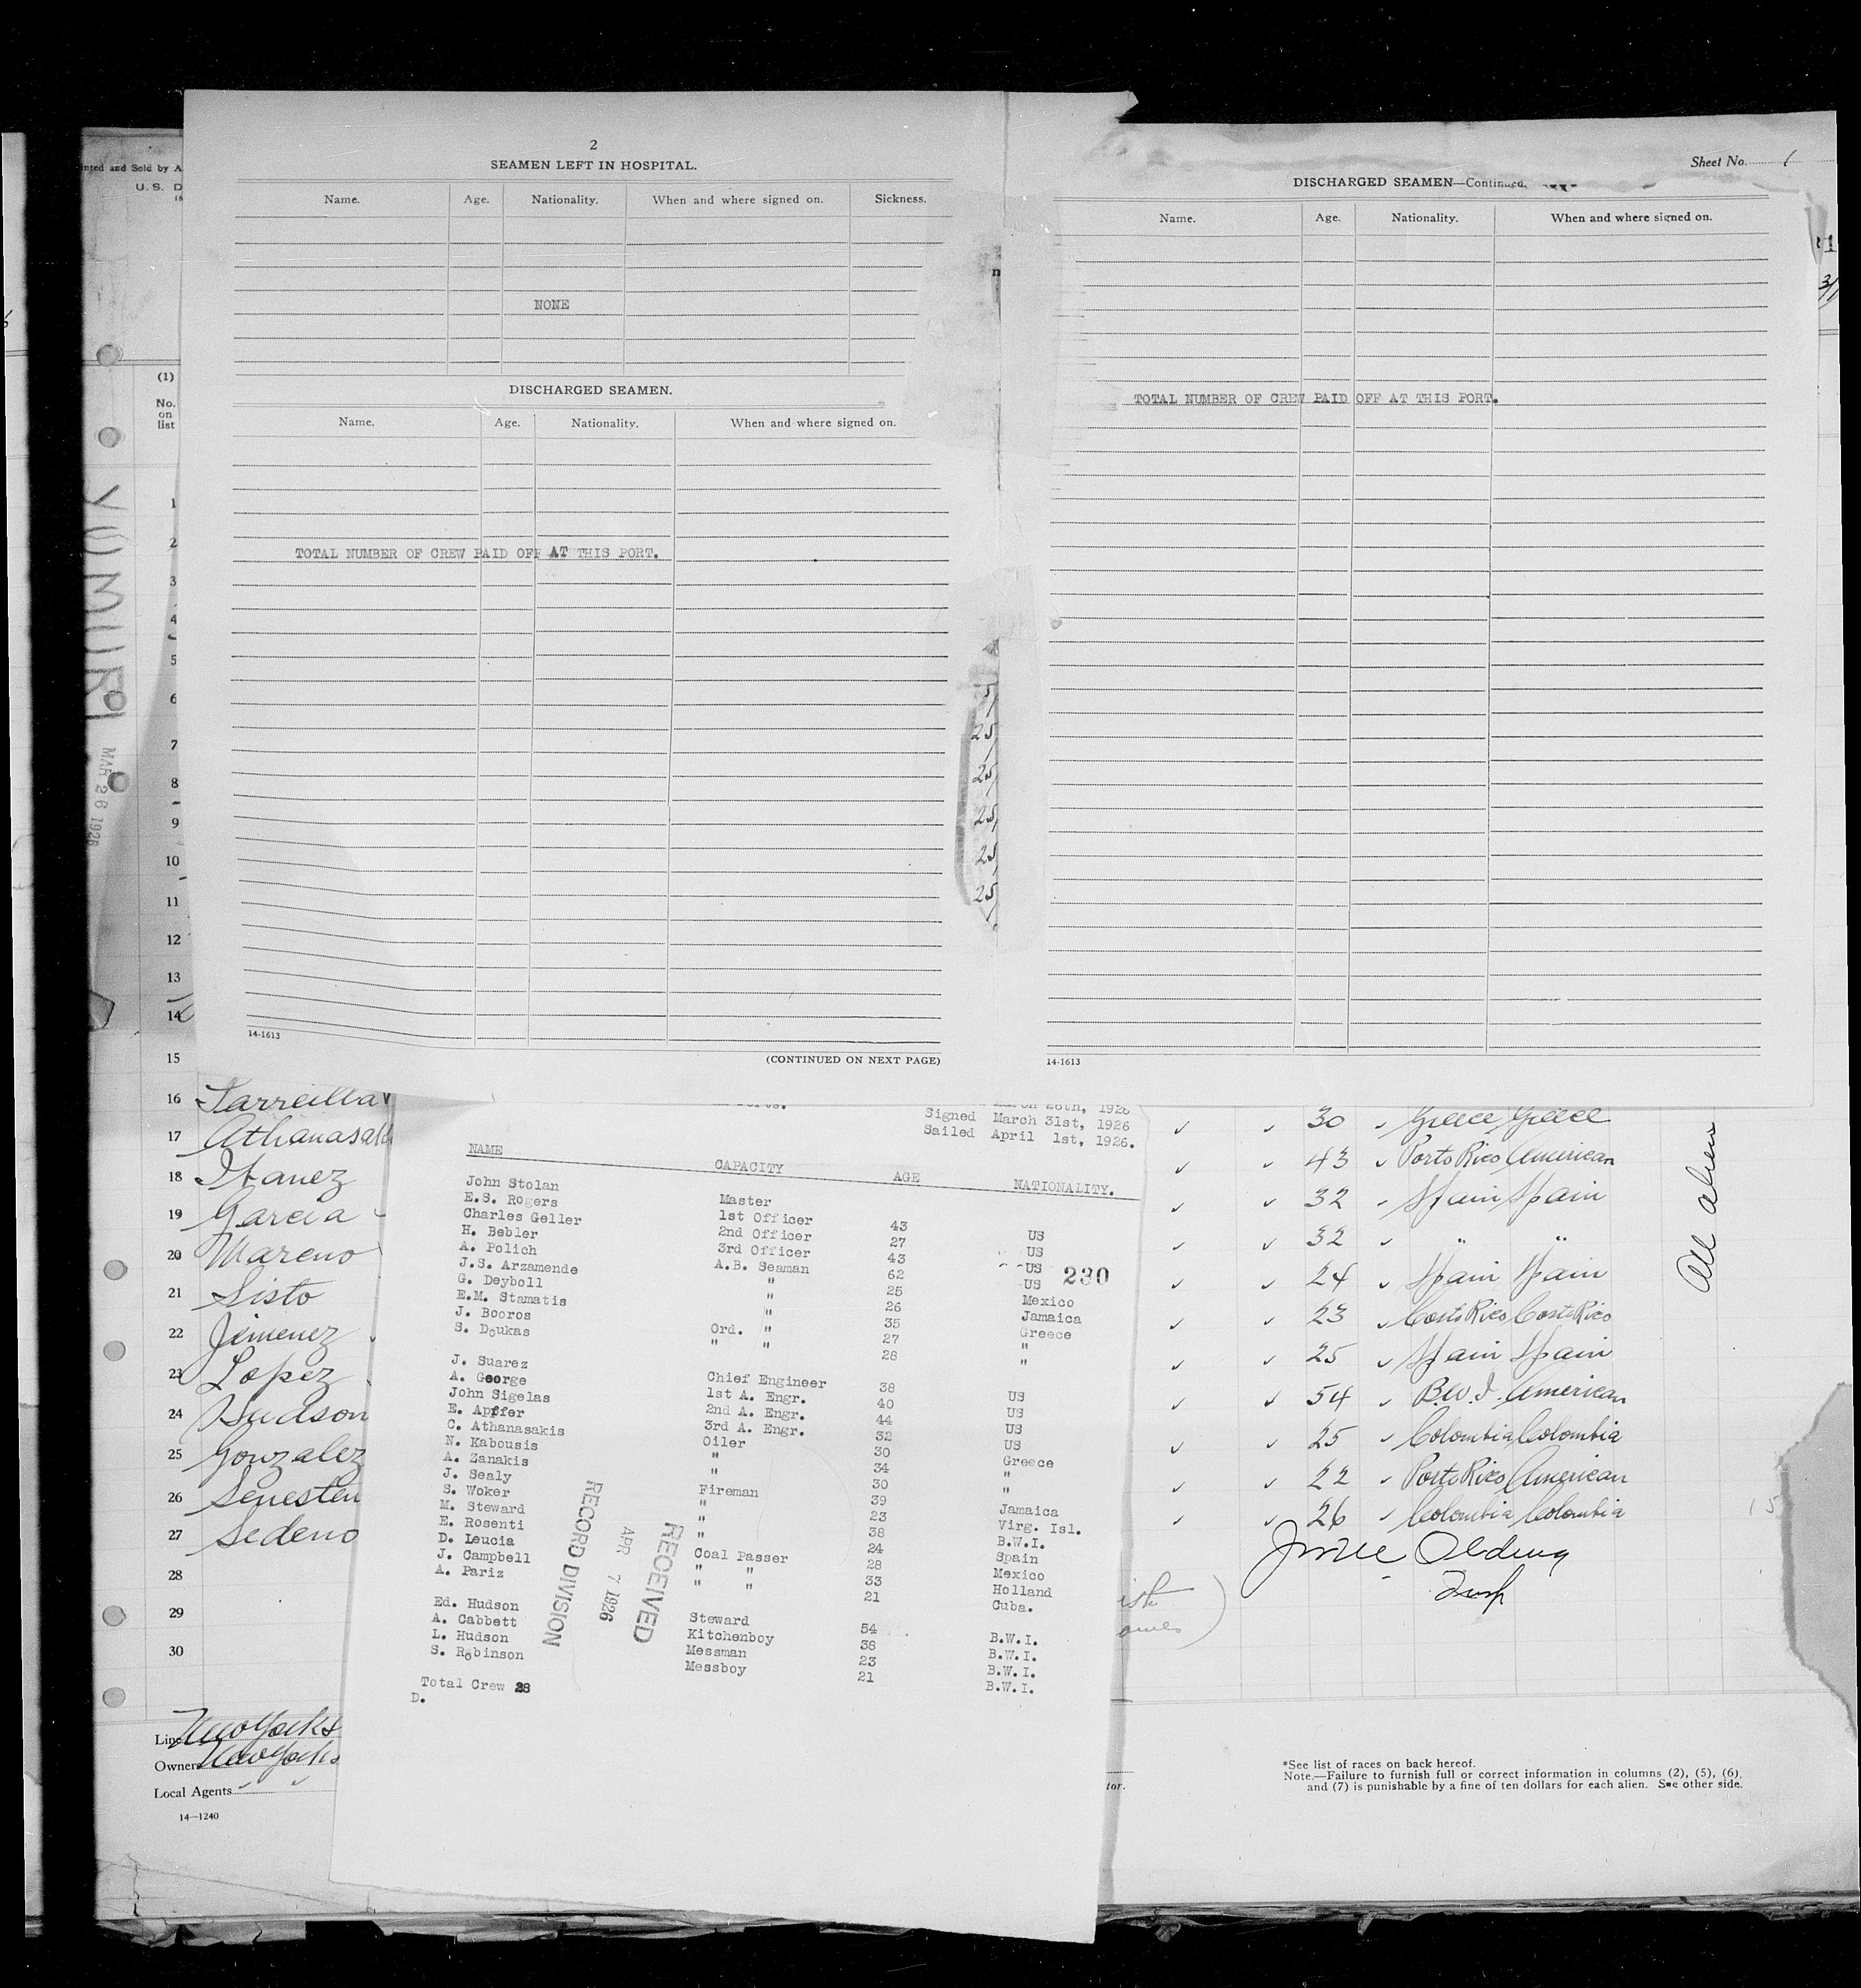 2
SEAMEN LEFT IN HOSPITAL.
Name. Age. Nationality. When and where signed on. Sickness.
NONE
DISCHARGED SEAMEN.
Name. Age. Nationality. When and where signed on.
TOTAL NUMBER OF CREW PAID OFF AT THIS PORT.
14-1613
(CONTINUED ON NEXT PAGE)
Sheet No. 1
DISCHARGED SEAMEN—Continued.
Name. Age. Nationality. When and where signed on.
TOTAL NUMBER OF CREW PAID OFF AT THIS PORT.
14-1613
U.S. D
(1)
No.
on
list
YUMURI
MAR 26 1926
1
2
3
4
5
6
7
8
9
10
11
12
13
14
15
25
25
25
25
25
16
17
18 Ibanez
19 Garcia
20 Mareno
21 Sisto
22 Jimenez
23 Lopez
24 Hudson
25 Gonzalez
26
27 Sedeno
28
29
30
30 Greece Greece
43 Porto Rico American
32 Spain Spain
32 " "
24 Spain Spain
23 Costa Rico Costa Rico
25 Spain Spain
54 B.W.I. American
25 Colombia Colombia
22 Porto Rico American
26 Colombia Colombia
All aliens
Insp
March 26th, 1926
Signed March 31st, 1926
Sailed April 1st, 1926.
NAME CAPACITY AGE NATIONALITY.
John Stolan Master 43 US
E.S. Rogers 1st Officer 27 US
Charles Geller 2nd Officer 43 US
H. Bebler 3rd Officer 62 US
230
A. Polich A.B. Seaman 25 Mexico
J.S. Arzamende " 26 Jamaica
G. Deyboll " 35 Greece
E.M. Stamatis " 27 "
J. Booros Ord. " 28 "
S. Doukas " "
J. Suarez Chief Engineer 38 US
A. George 1st A. Engr. 40 US
John Sigelas 2nd A. Engr. 44 US
E. Apffer 3rd A. Engr. 32 US
C. Athanasakis Oiler 30 Greece
N. Kabousis " 34 "
A. Zanakis " 30 "
J. Sealy Fireman 39 Jamaica
S. Woker " 23 Virg. Isl.
M. Steward " 38 B.W.I.
E. Rosenti " 24 Spain
D. Leucia Coal Passer 28 Mexico
J. Campbell " " 33 Holland
A. Pariz " " 21 Cuba.
Ed. Hudson Steward 54 B.W.I.
A. Cabbett Kitchenboy 38 B.W.I.
L. Hudson Messman 23 B.W.I.
S. Robinson Messboy 21 B.W.I.
Total Crew 28
D.
RECEIVED
APR 7 1926
RECORD DIVISION
Line New York &
Owners New York &
Local Agents
14—1240
tor.
*See list of races on back hereof.
Note.—Failure to furnish full or correct information in columns (2), (5), (6),
and (7) is punishable by a fine of ten dollars for each alien. See other side.